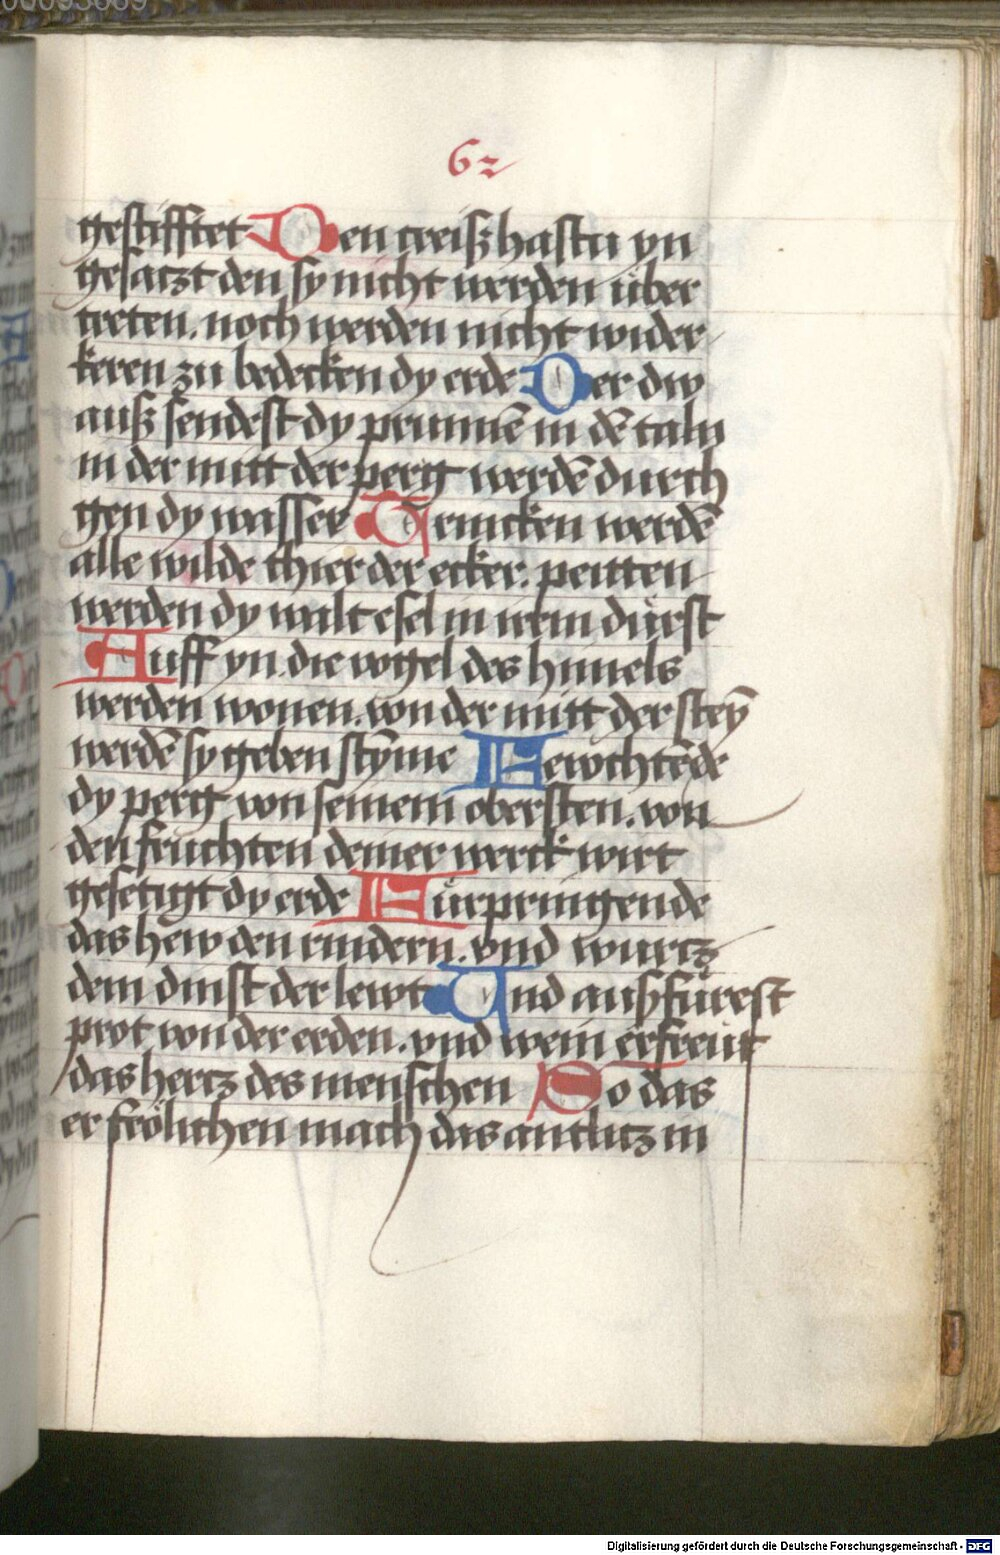 00093669
62
gestifftet Den creiß hastu yn
gesatzt den sy nicht werden über
treten. noch werden nicht wider
keren zu bedecken dy erde Der dw
auß sendest dy prunnē in dē taln
in der mitt der perg werdē durch
gen dy wasser Trincken werdē
alle wilde thier der ecker. peitten
werden dy walt esel in irem dürst
Auff yn. die vogel des himels
werden wonen. von der mitt der steȳ
werdē sy geben stȳme Fewchtēde
dy perg von seinem obersten. von
den fruchten deiner werck wirt
gesetigt dy erde Fürpringende
das hew den rindern. vnd wurtz
dem dinst der lewt Und außfürest
prot von der erden. vnd wein erfreut
das hertz des menschen So das
er frölichen mach das antlitz in
Digitalisierung gefördert durch die Deutsche Forschungsgemeinschaft - DFG